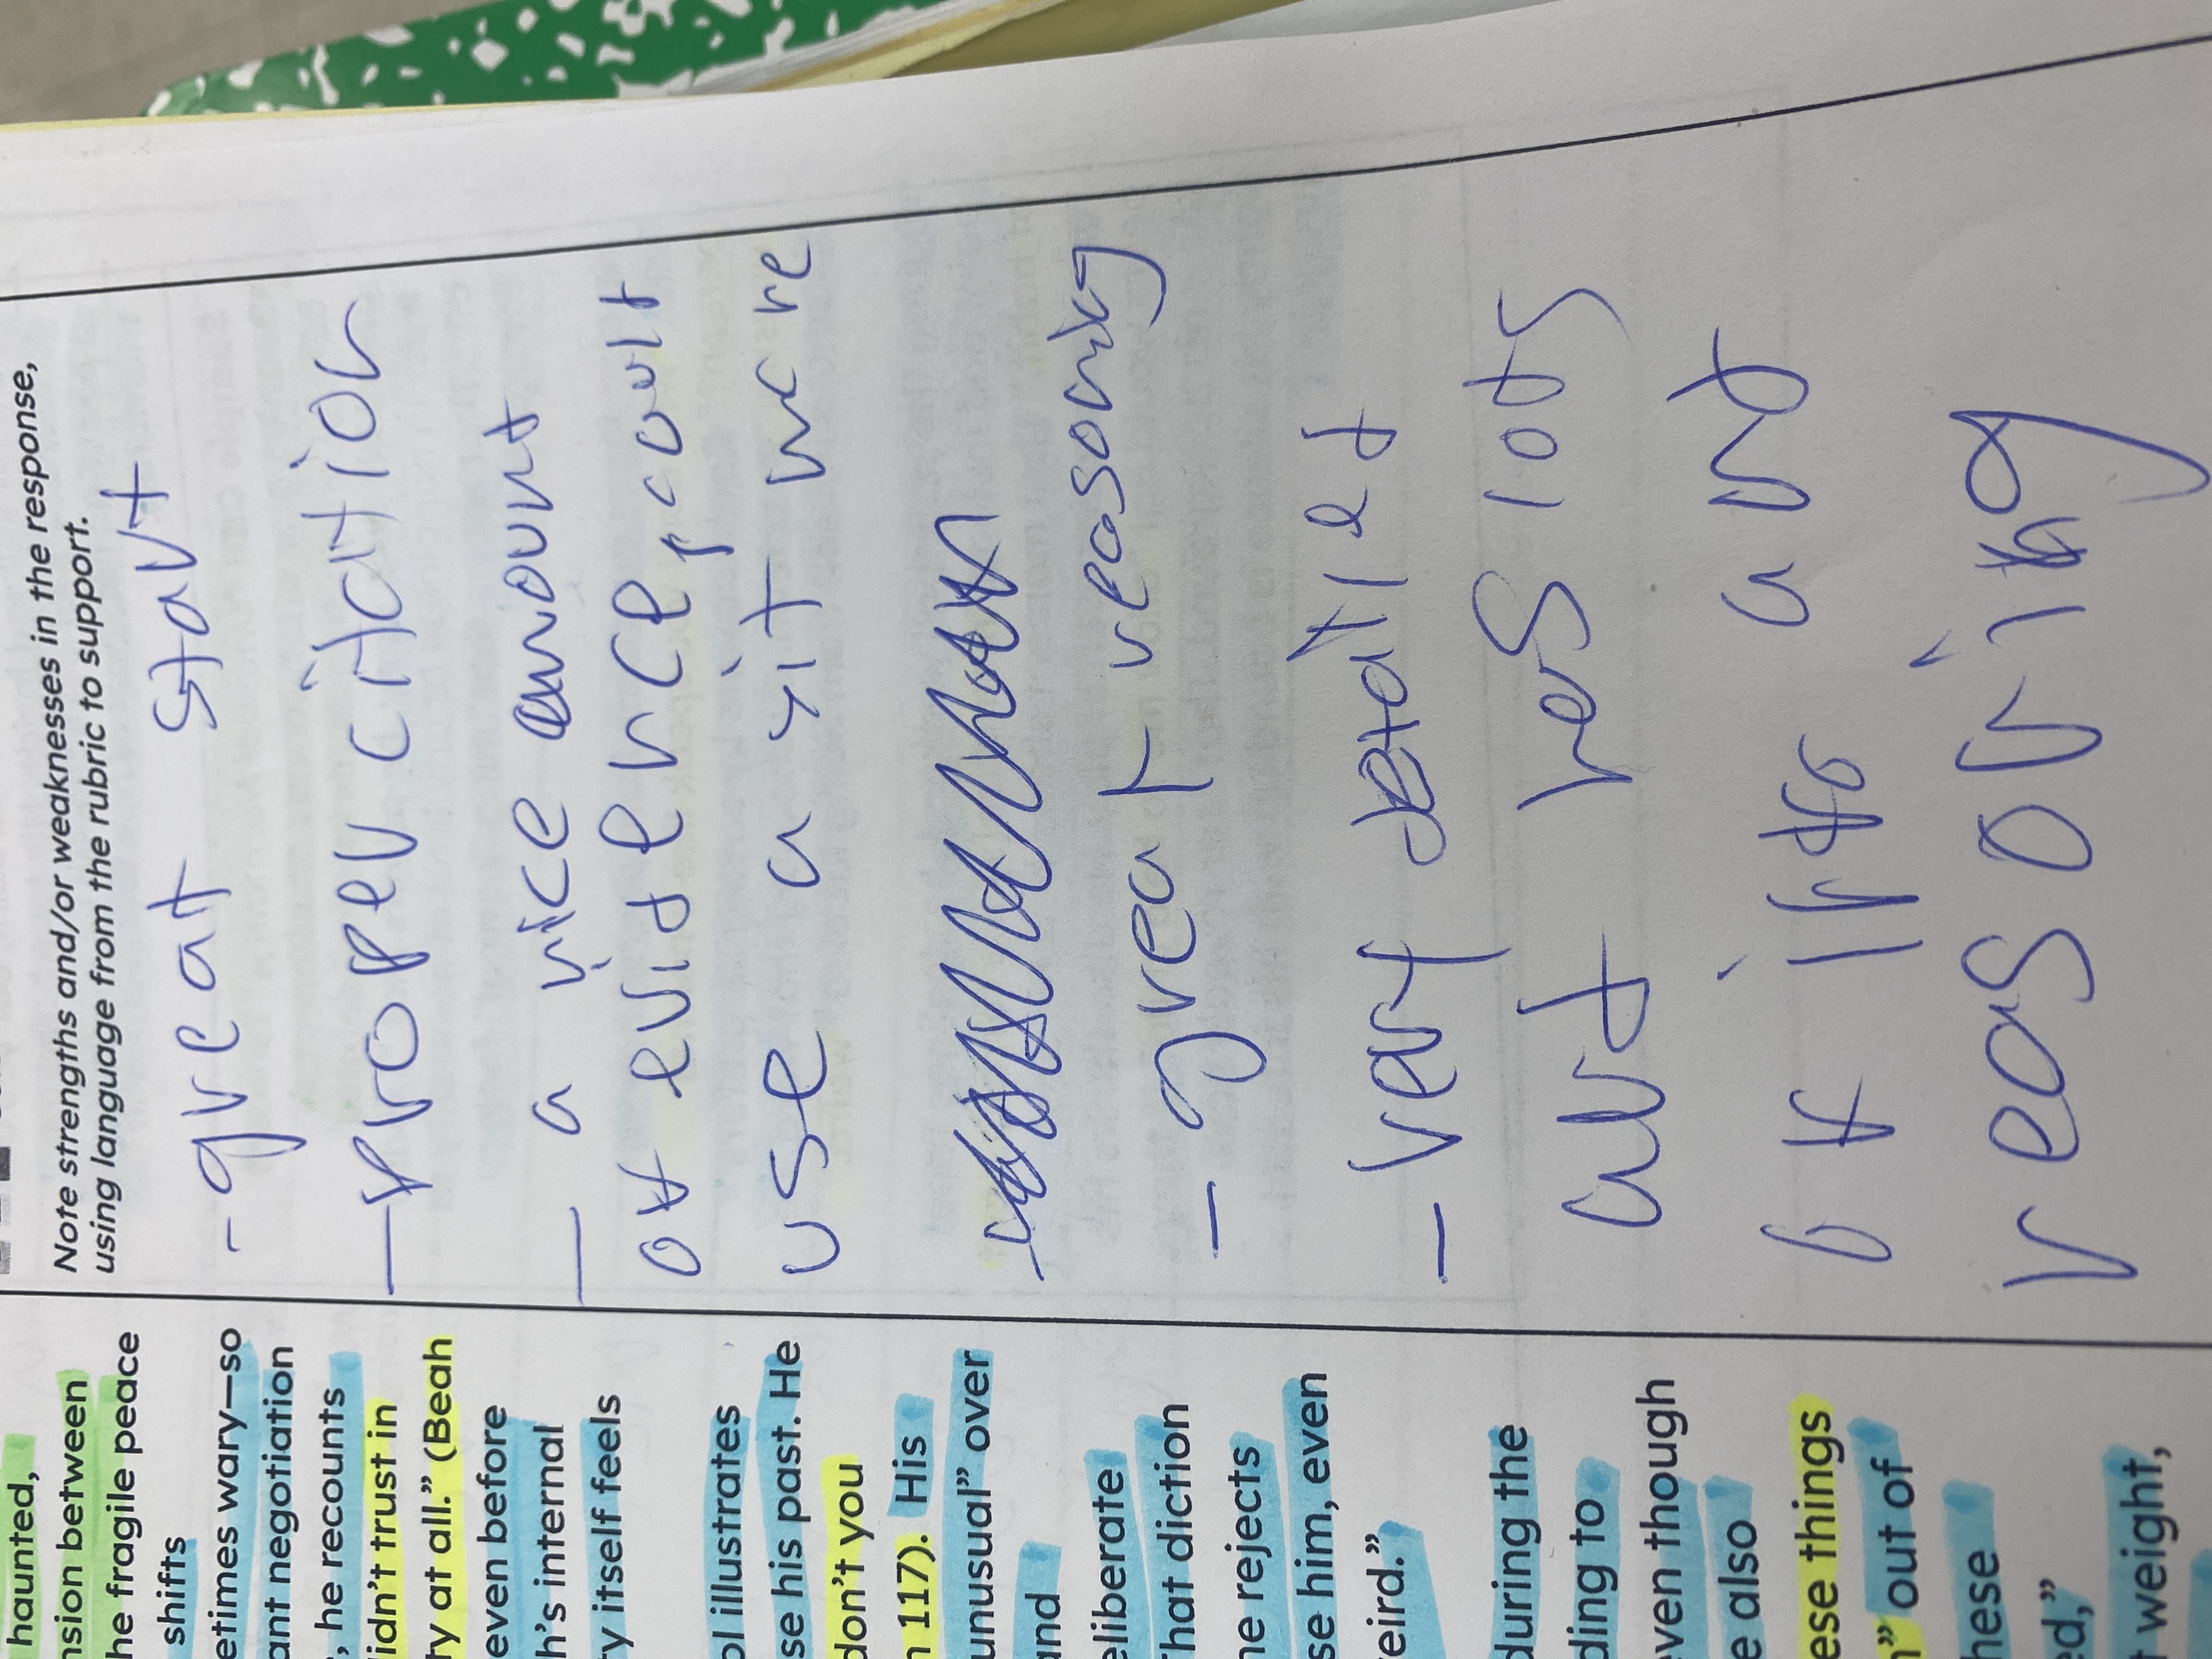 haunted,
nsion between
he fragile peace
shifts
etimes wary—so
ant negotiation
, he recounts
idn't trust in
ty at all." (Beah
even before
h's internal
ty itself feels
ol illustrates
se his past. He
don't you
n 117). His
unusual" over
and
eliberate
hat diction
he rejects
se him, even
eird."
during the
ding to
even though
e also
ese things
" out of
hese
ed,"
t weight,
Note strengths and/or weaknesses in the response,
using language from the rubric to support.
- great start
- proper citation
- a nice amount
of evidence, coult
use a yit more
- great reasoning
- very detailed
and lots
of a and
reasoning